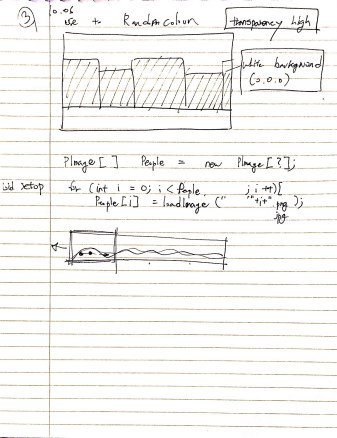 ③ 10.06
use to Random colour transparency high
white background
(0.0.0)
PImage[ ] People = new PImage[?];
void setup for (int i = 0; i < People. ; i++){
People[i] = loadImage (" "+i+".png );
jpg